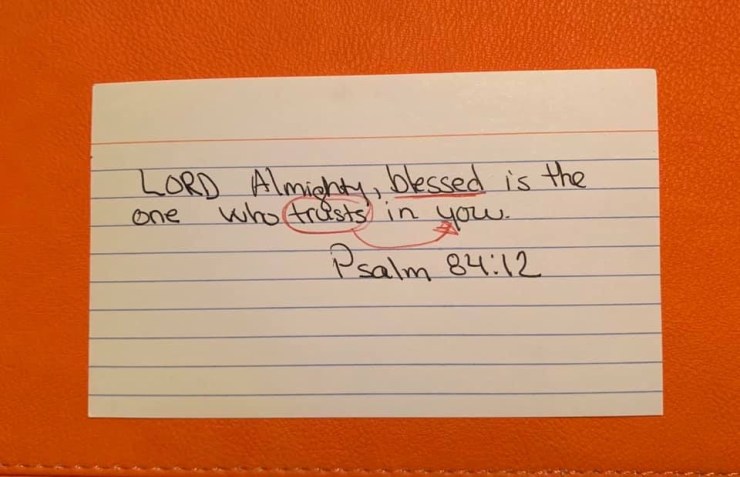 LORD Almighty, blessed is the
one who trusts in you.
Psalm 84:12